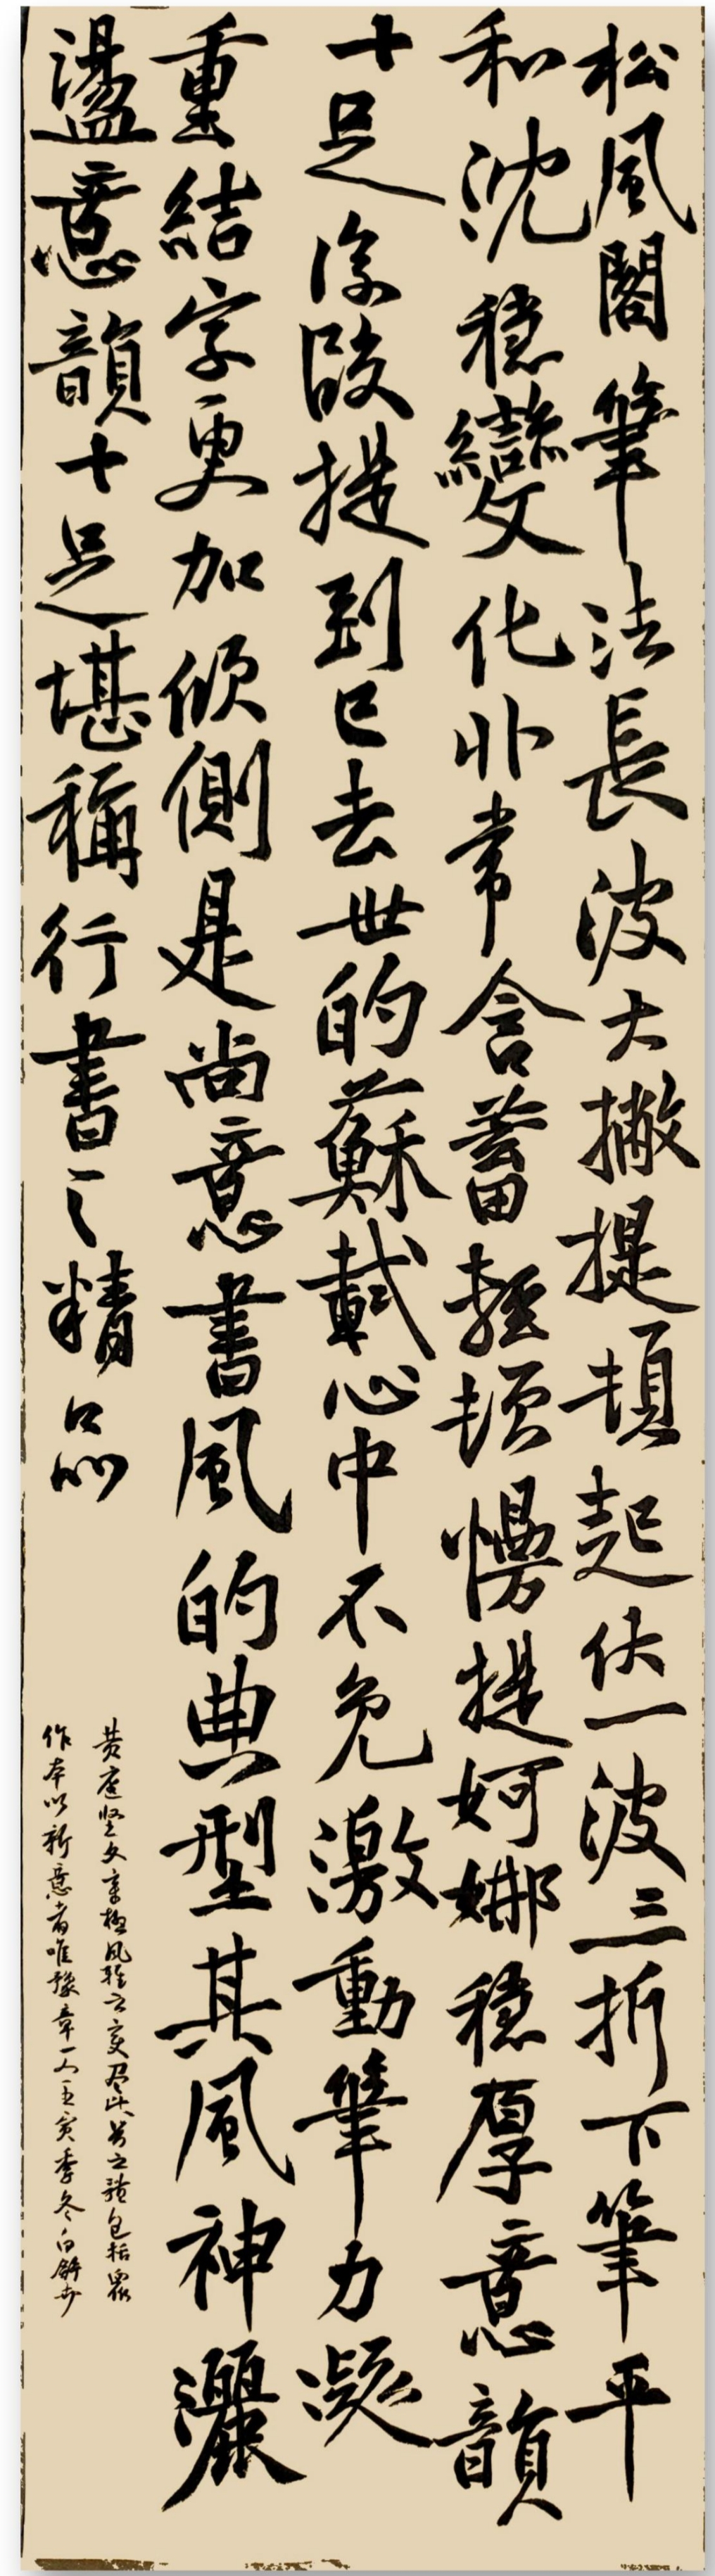 松風閣筆法長波大撇提頓起伏一波三折下筆平
和沈穩變化非常含蓄輕頓慢提婀娜穩厚意韻
十足後段提到已去世的蘇軾心中不免激動筆力凝
重結字更加傾側是尚意書風的典型其風神灑
盪意韻十足堪稱行書之精品
黃庭堅文章極風雅之變尽比芳之體包括眾
作本以新意者唯豫章一人壬寅季冬白